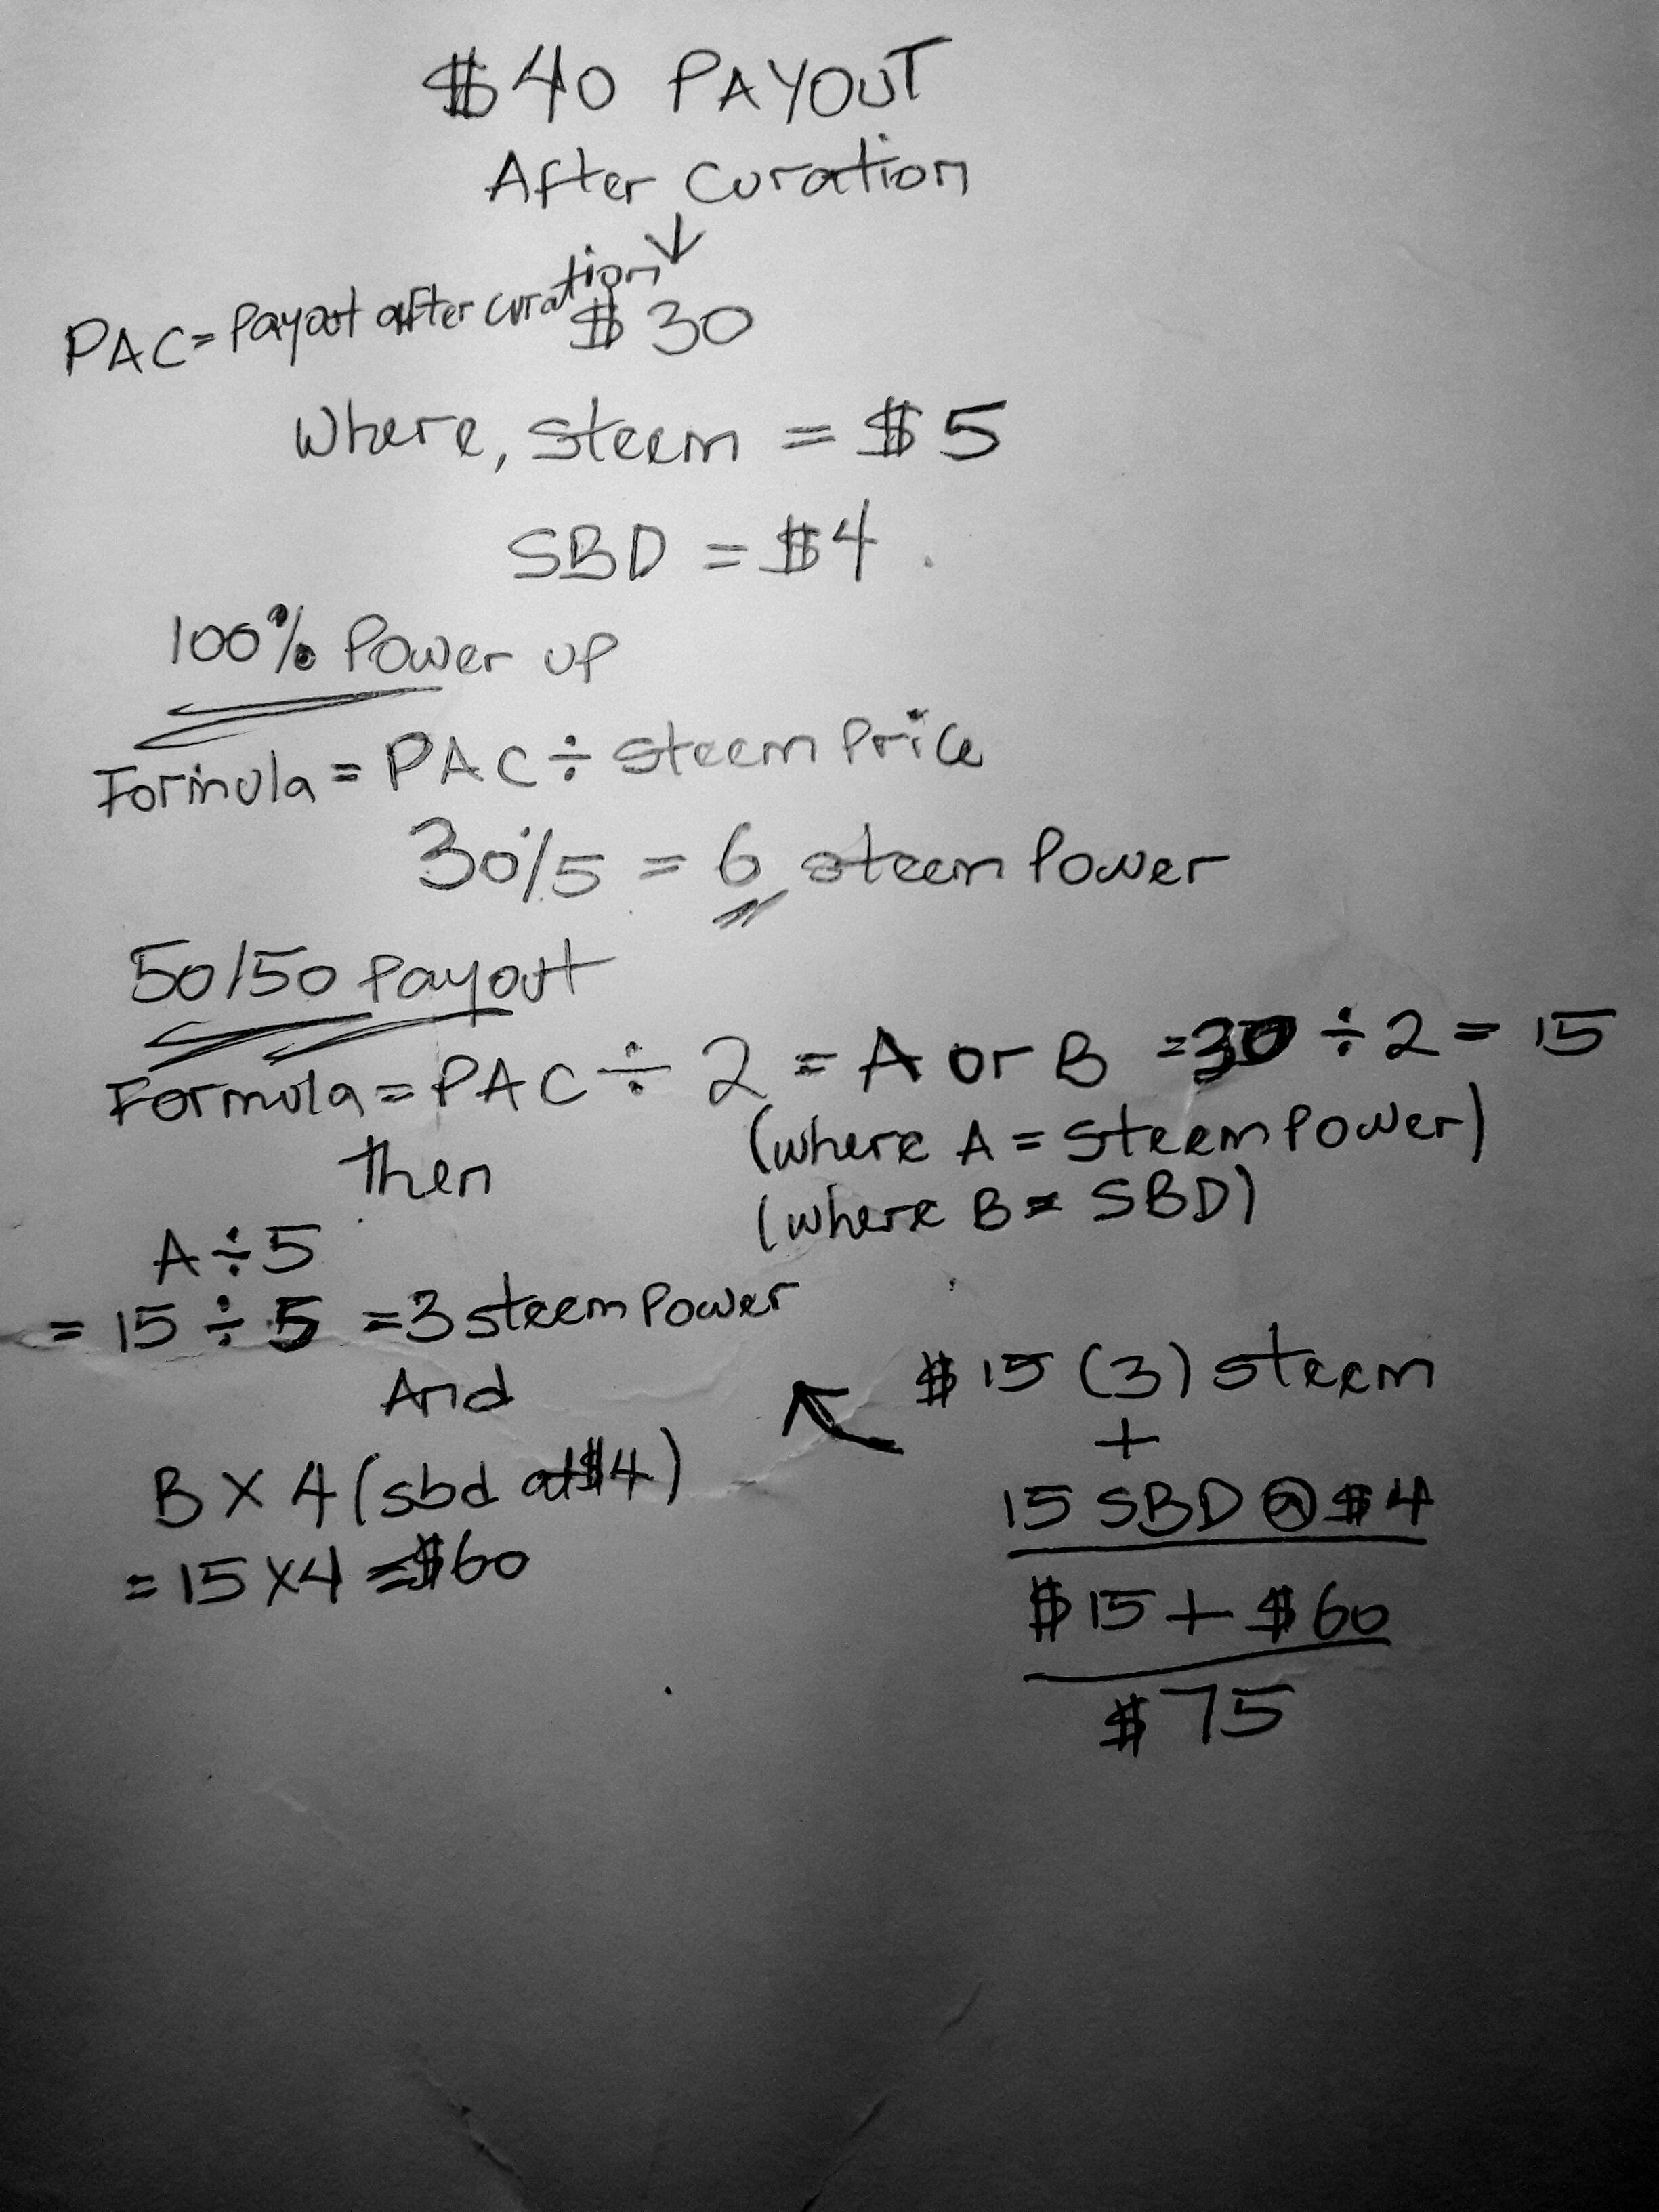 $40 PAYOUT
After Curation
↓
PAC = Payout after curation
$30
Where, steem = $5
SBD = $4.
100% Power up
Formula = PAC ÷ steem Price
30/5 = 6 steem Power
50/50 Payout
Formula = PAC ÷ 2 = A or B = 30 ÷ 2 = 15
then
(where A = Steem Power)
(where B = SBD)
A ÷ 5
= 15 ÷ 5 = 3 steem Power
And
B X 4 (sbd at $4)
= 15 X 4 = $60
$15 (3) steem
+
15 SBD @ $4
$15 + $60
$75